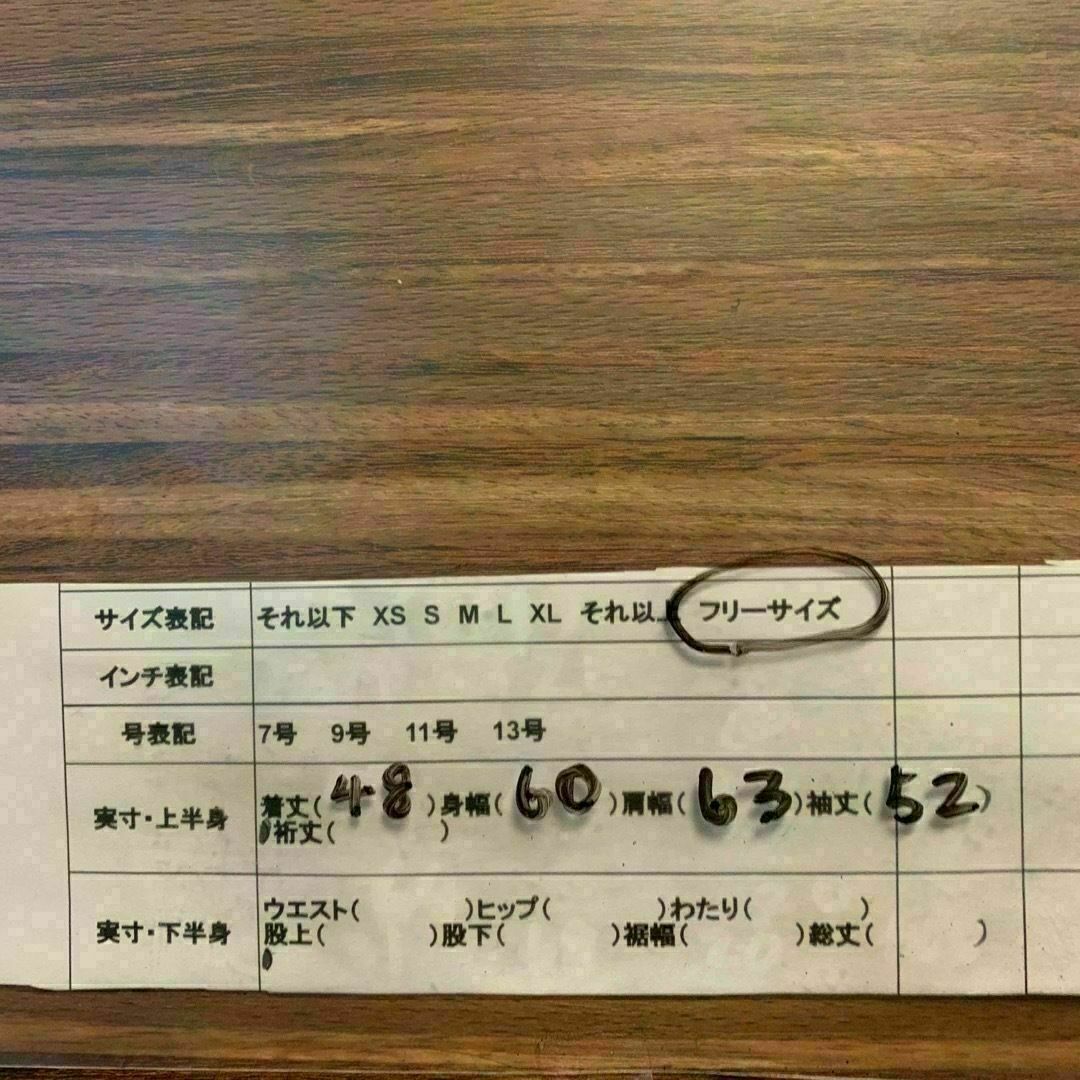 サイズ表記 それ以下 XS S M L XL それ以上 フリーサイズ
インチ表記
号表記 7号 9号 11号 13号
実寸・上半身 着丈( 48 )身幅( 60 )肩幅( 63 )袖丈( 52 )
裄丈( )
実寸・下半身 ウエスト( )ヒップ( )わたり( )
股上( )股下( )裾幅( )総丈( )